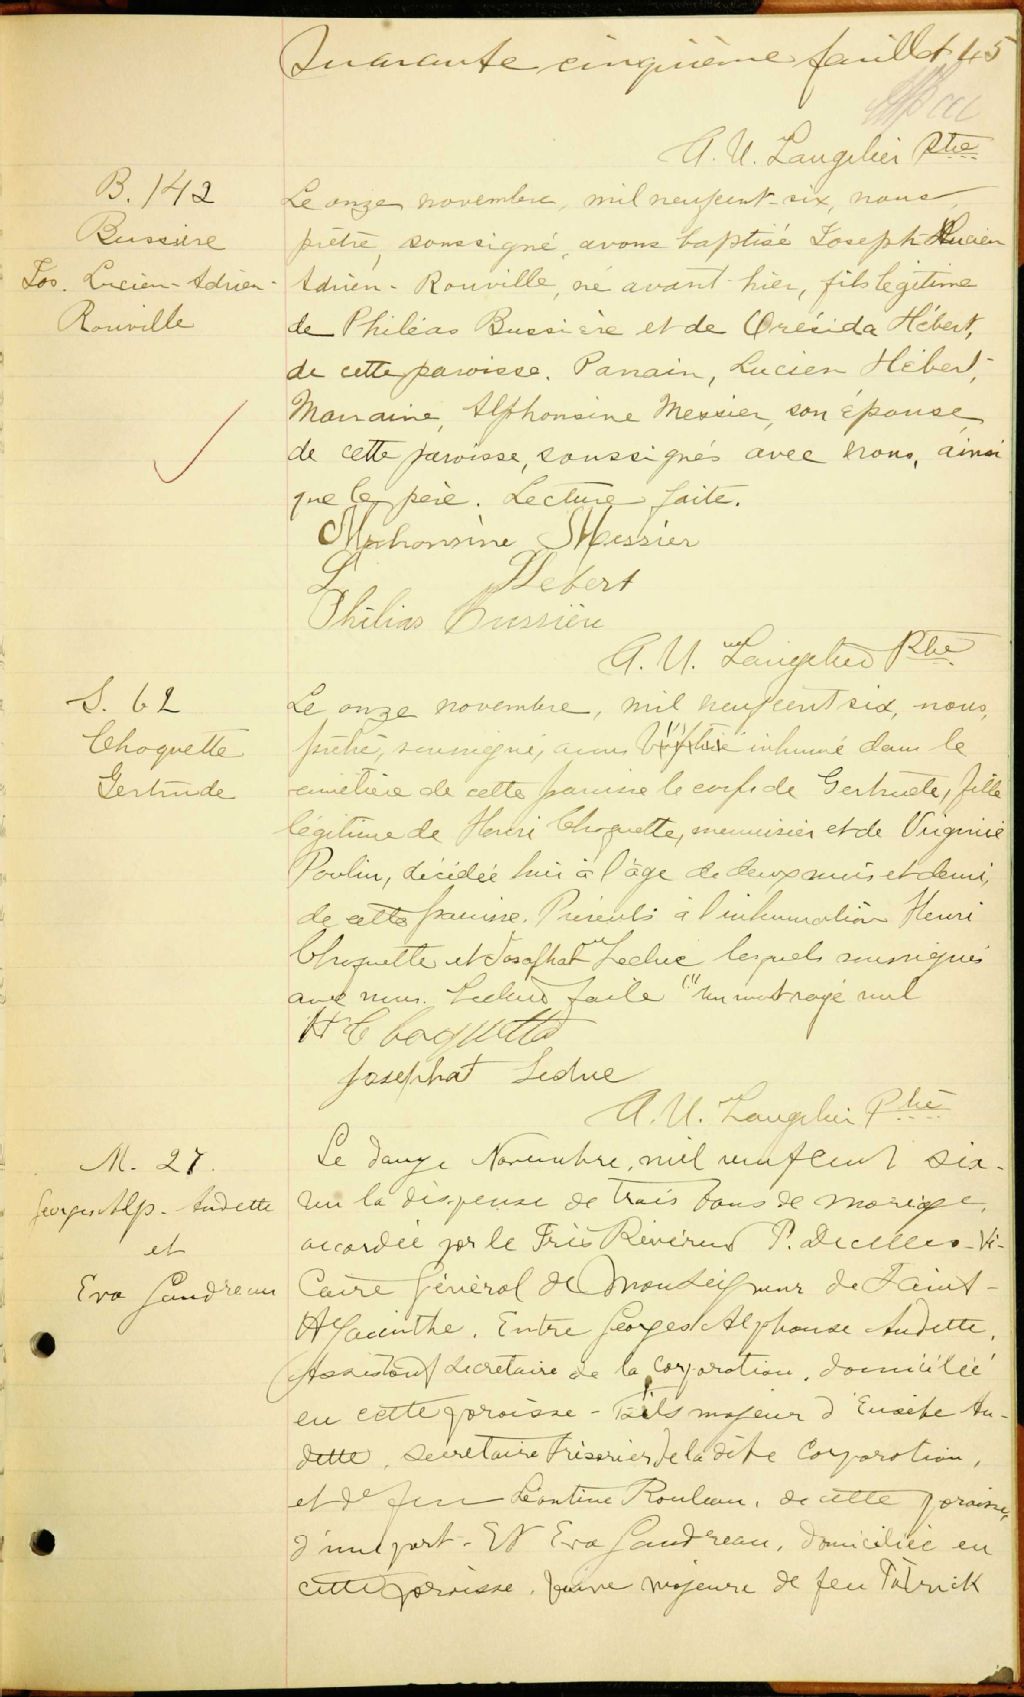 Quarante cinquième feuillet 45
A. U. Langelier Ptre
B. 142
Bussière
Jos. Lucien-Adrien-
Rouville
Le onze novembre, mil neuf cent-six, nous,
prêtre, soussigné, avons baptisé Joseph Lucien
Adrien-Rouville, né avant-hier, fils légitime
de Philéas Bussière et de Orésida Hébert,
de cette paroisse. Parrain, Lucien Hébert,
Marraine, Alphonsine Messier, son épouse,
de cette paroisse, soussignés avec nous, ainsi
que le père. Lecture faite.
Alphonsine Messier
L Hebert
Philias Bussière
A. U. Langelier Ptre
S. 62
Choquette
Gertrude
Le onze novembre, mil neuf cent six, nous,
prêtre, soussigné, avons baptisé inhumé dans le
cimetière de cette paroisse le corps de Gertrude, fille
légitime de Henri Choquette, menuisier et de Virginie
Poulin, décédée hier à l'âge de deux mois et demi,
de cette paroisse. Présents à l'inhumation Henri
Choquette et Josaphat Leduc lesquels soussignés
avec nous. Lecture faite (1) un mot rayé nul
H Choquette
Josephat Leduc
A. U. Langelier Ptre
M. 27.
Georges Alp. Audette
et
Eva Gaudreau
Le douze Novembre, mil neuf cent six.
vu la dispense de trois bans de mariage,
accordée par le Très Révérend P. Decelles-Vi-
caire Général de Monseigneur de Saint-
Hyacinthe. Entre Georges Alphonse Audette,
Assistant Secretaire de la Corporation, domicilié
en cette paroisse-Fils majeur d'Eusèbe Au-
dette, Secretaire Trésorier de la dite Corporation,
et de feu Léontine Rouleau, de cette paroisse,
d'une part-Et Eva Gaudreau, domiciliée en
cette paroisse, majeure de feu Patrick